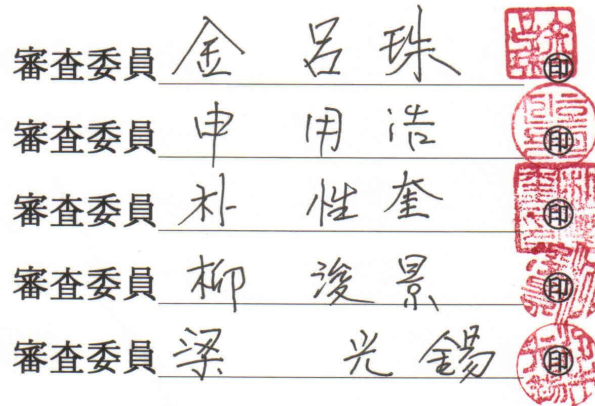 審査委員 金 呂 珠 印
審査委員 申 用 浩 印
審査委員 朴 性 奎 印
審査委員 柳 浚 景 印
審査委員 梁 光 錫 印